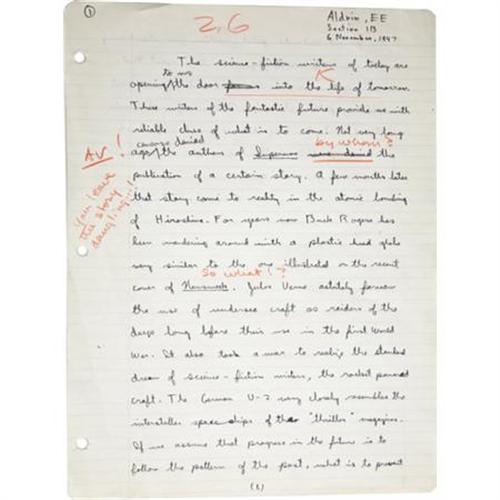 1
2.6
Aldrin, EE
Section 1B
6 November, 1947
The science-fiction writers of today are
to us
opening the door into the life of tomorrow.
These writers of the fantastic future provide us with
reliable clues of what is to come. Not very long
censors denied
by whom?
AV!
ago the authors of Superman were denied the
publication of a certain story. A few months later
You leave
this story
dangling...!
that story came to reality in the atomic bombing
of Hiroshima. For years now Buck Rogers has
been wandering around with a plastic head globe
very similar to the one illustrated on the recent
So what!?
cover of Newsweek. Jules Verne astutely foresaw
the use of undersea craft as raiders of the
deep long before their use in the first World
War. It also took a war to realize the standard
dream of science-fiction writers, the rocket powered
craft. The German V-2 very closely resembles the
interstellar space ships of the "thriller" magazines.
If we assume that progress in the future is to
follow the pattern of the past, what is to prevent
(1)